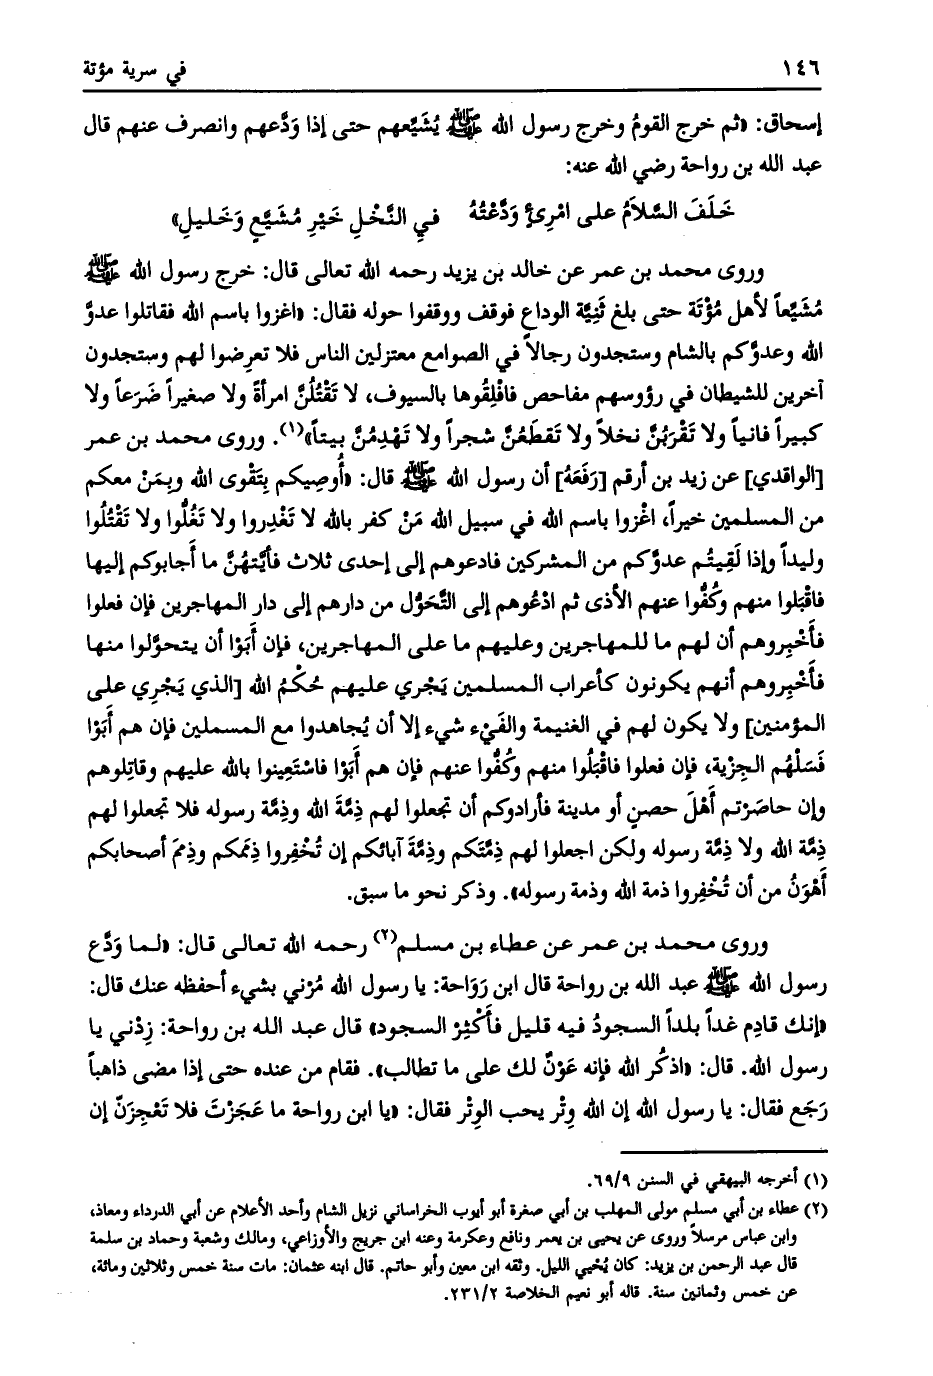 ١٤٦ في سرية مؤتة
إسحاق: «ثم خرج القومُ وخرج رسول الله ﷺ يُشَيِّعهم حتى إذا وَدَّعهم وانصرف عنهم قال
عبد الله بن رواحة رضي الله عنه:
خَلَفَ السَّلاَمُ على امْرِئٍ وَدَّعْتُهُ في النَّخْلِ خَيْرِ مُشَيَّعٍ وَخَليلِ»
وروى محمد بن عمر عن خالد بن يزيد رحمه الله تعالى قال: خرج رسول الله ﷺ
مُشَيِّعاً لأهل مُؤْتَة حتى بلغ ثَنِيَّة الوداع فوقف ووقفوا حوله فقال: «اغزوا باسم الله فقاتلوا عدوَّ
الله وعدوَّكم بالشام وستجدون رجالاً في الصوامع معتزلين الناس فلا تعرِضوا لهم وستجدون
آخرين للشيطان في رؤوسهم مفاحص فافْلِقُوها بالسيوف، لا تَقْتُلُنَّ امرأةً ولا صغيراً ضَرَعاً ولا
كبيراً فانياً ولا تَقْرَبُنَّ نخلاً ولا تَقطَعُنَّ شجراً ولا تَهْدِمُنَّ بيتاً»(١). وروى محمد بن عمر
[الواقدي] عن زيد بن أرقم [رَفَعَهُ] أن رسول الله ﷺ قال: «أُوصِيكم بِتَقْوى الله وبِمَنْ معكم
من المسلمين خيراً، اغْزوا باسم الله في سبيل الله مَنْ كفر بالله لا تَغْدِروا ولا تَغُلُّوا ولا تَقْتُلُوا
وليداً وإذا لَقِيتُم عدوَّكم من المشركين فادعوهم إلى إحدى ثلاث فأيَّتهُنَّ ما أَجابوكم إليها
فاقْبَلوا منهم وكُفُّوا عنهم الأذى ثم ادْعُوهم إلى التَّحَوُّل من دارهم إلى دار المهاجرين فإن فعلوا
فأَخْبِروهم أن لهم ما للمهاجرين وعليهم ما على المهاجرين، فإن أَبَوْا أن يتحوَّلوا منها
فأَخْبِروهم أنهم يكونون كأعراب المسلمين يَجْري عليهم حُكْمُ الله [الذي يَجْرِي على
المؤمنين] ولا يكون لهم في الغنيمة والفَيْء شيء إلا أن يُجاهدوا مع المسملين فإن هم أَبَوْا
فَسَلْهُم الجِزْية، فإن فعلوا فاقْبَلُوا منهم وكُفُّوا عنهم فإن هم أَبَوْا فاسْتَعِينوا بالله عليهم وقاتِلوهم
وإن حاصَرْتم أَهْلَ حصنٍ أو مدينة فأرادوكم أن تجعلوا لهم ذِمَّةَ الله وذِمَّة رسوله فلا تجعلوا لهم
ذِمَّة الله ولا ذِمَّة رسوله ولكن اجعلوا لهم ذِمَّتَكم وذِمَّةَ آبائكم إن تُخْفِروا ذِمَمَكم وذِمَمَ أصحابكم
أَهْوَنُ من أن تُخْفِروا ذمة الله وذمة رسوله». وذكر نحو ما سبق.
وروى محمد بن عمر عن عطاء بن مسلم(٢) رحمه الله تعالى قال: «لما وَدَّع
رسول الله ﷺ عبد الله بن رواحة قال ابن رَوَاحة: يا رسول الله مُرْني بشيء أحفظه عنك قال:
«إنك قادِم غداً بلداً السجودُ فيه قليل فأَكْثِرْ السجود» قال عبد الله بن رواحة: زِدْني يا
رسول الله. قال: «اذكُر الله فإنه عَوْنٌ لك على ما تطالب». فقام من عنده حتى إذا مضى ذاهباً
رَجَع فقال: يا رسول الله إن الله وِتْر يحب الوِتْر فقال: «يا ابن رواحة ما عَجَزْتَ فلا تَعْجِزَنّ إن
(١) أخرجه البيهقي في السنن ٦٩/٩.
(٢) عطاء بن أبي مسلم مولى المهلب بن أبي صفرة أبو أيوب الخراساني نزيل الشام وأحد الأعلام عن أبي الدرداء ومعاذ،
وابن عباس مرسلاً وروى عن يحيى بن يعمر ونافع وعكرمة وعنه ابن جريج والأوزاعي، ومالك وشعبة وحماد بن سلمة
قال عبد الرحمن بن يزيد: كان يُحْيي الليل. وثقه ابن معين وأبو حاتم. قال ابنه عثمان: مات سنة خمس وثلاثين ومائة،
عن خمس وثمانين سنة. قاله أبو نعيم الخلاصة ٢٣١/٢.